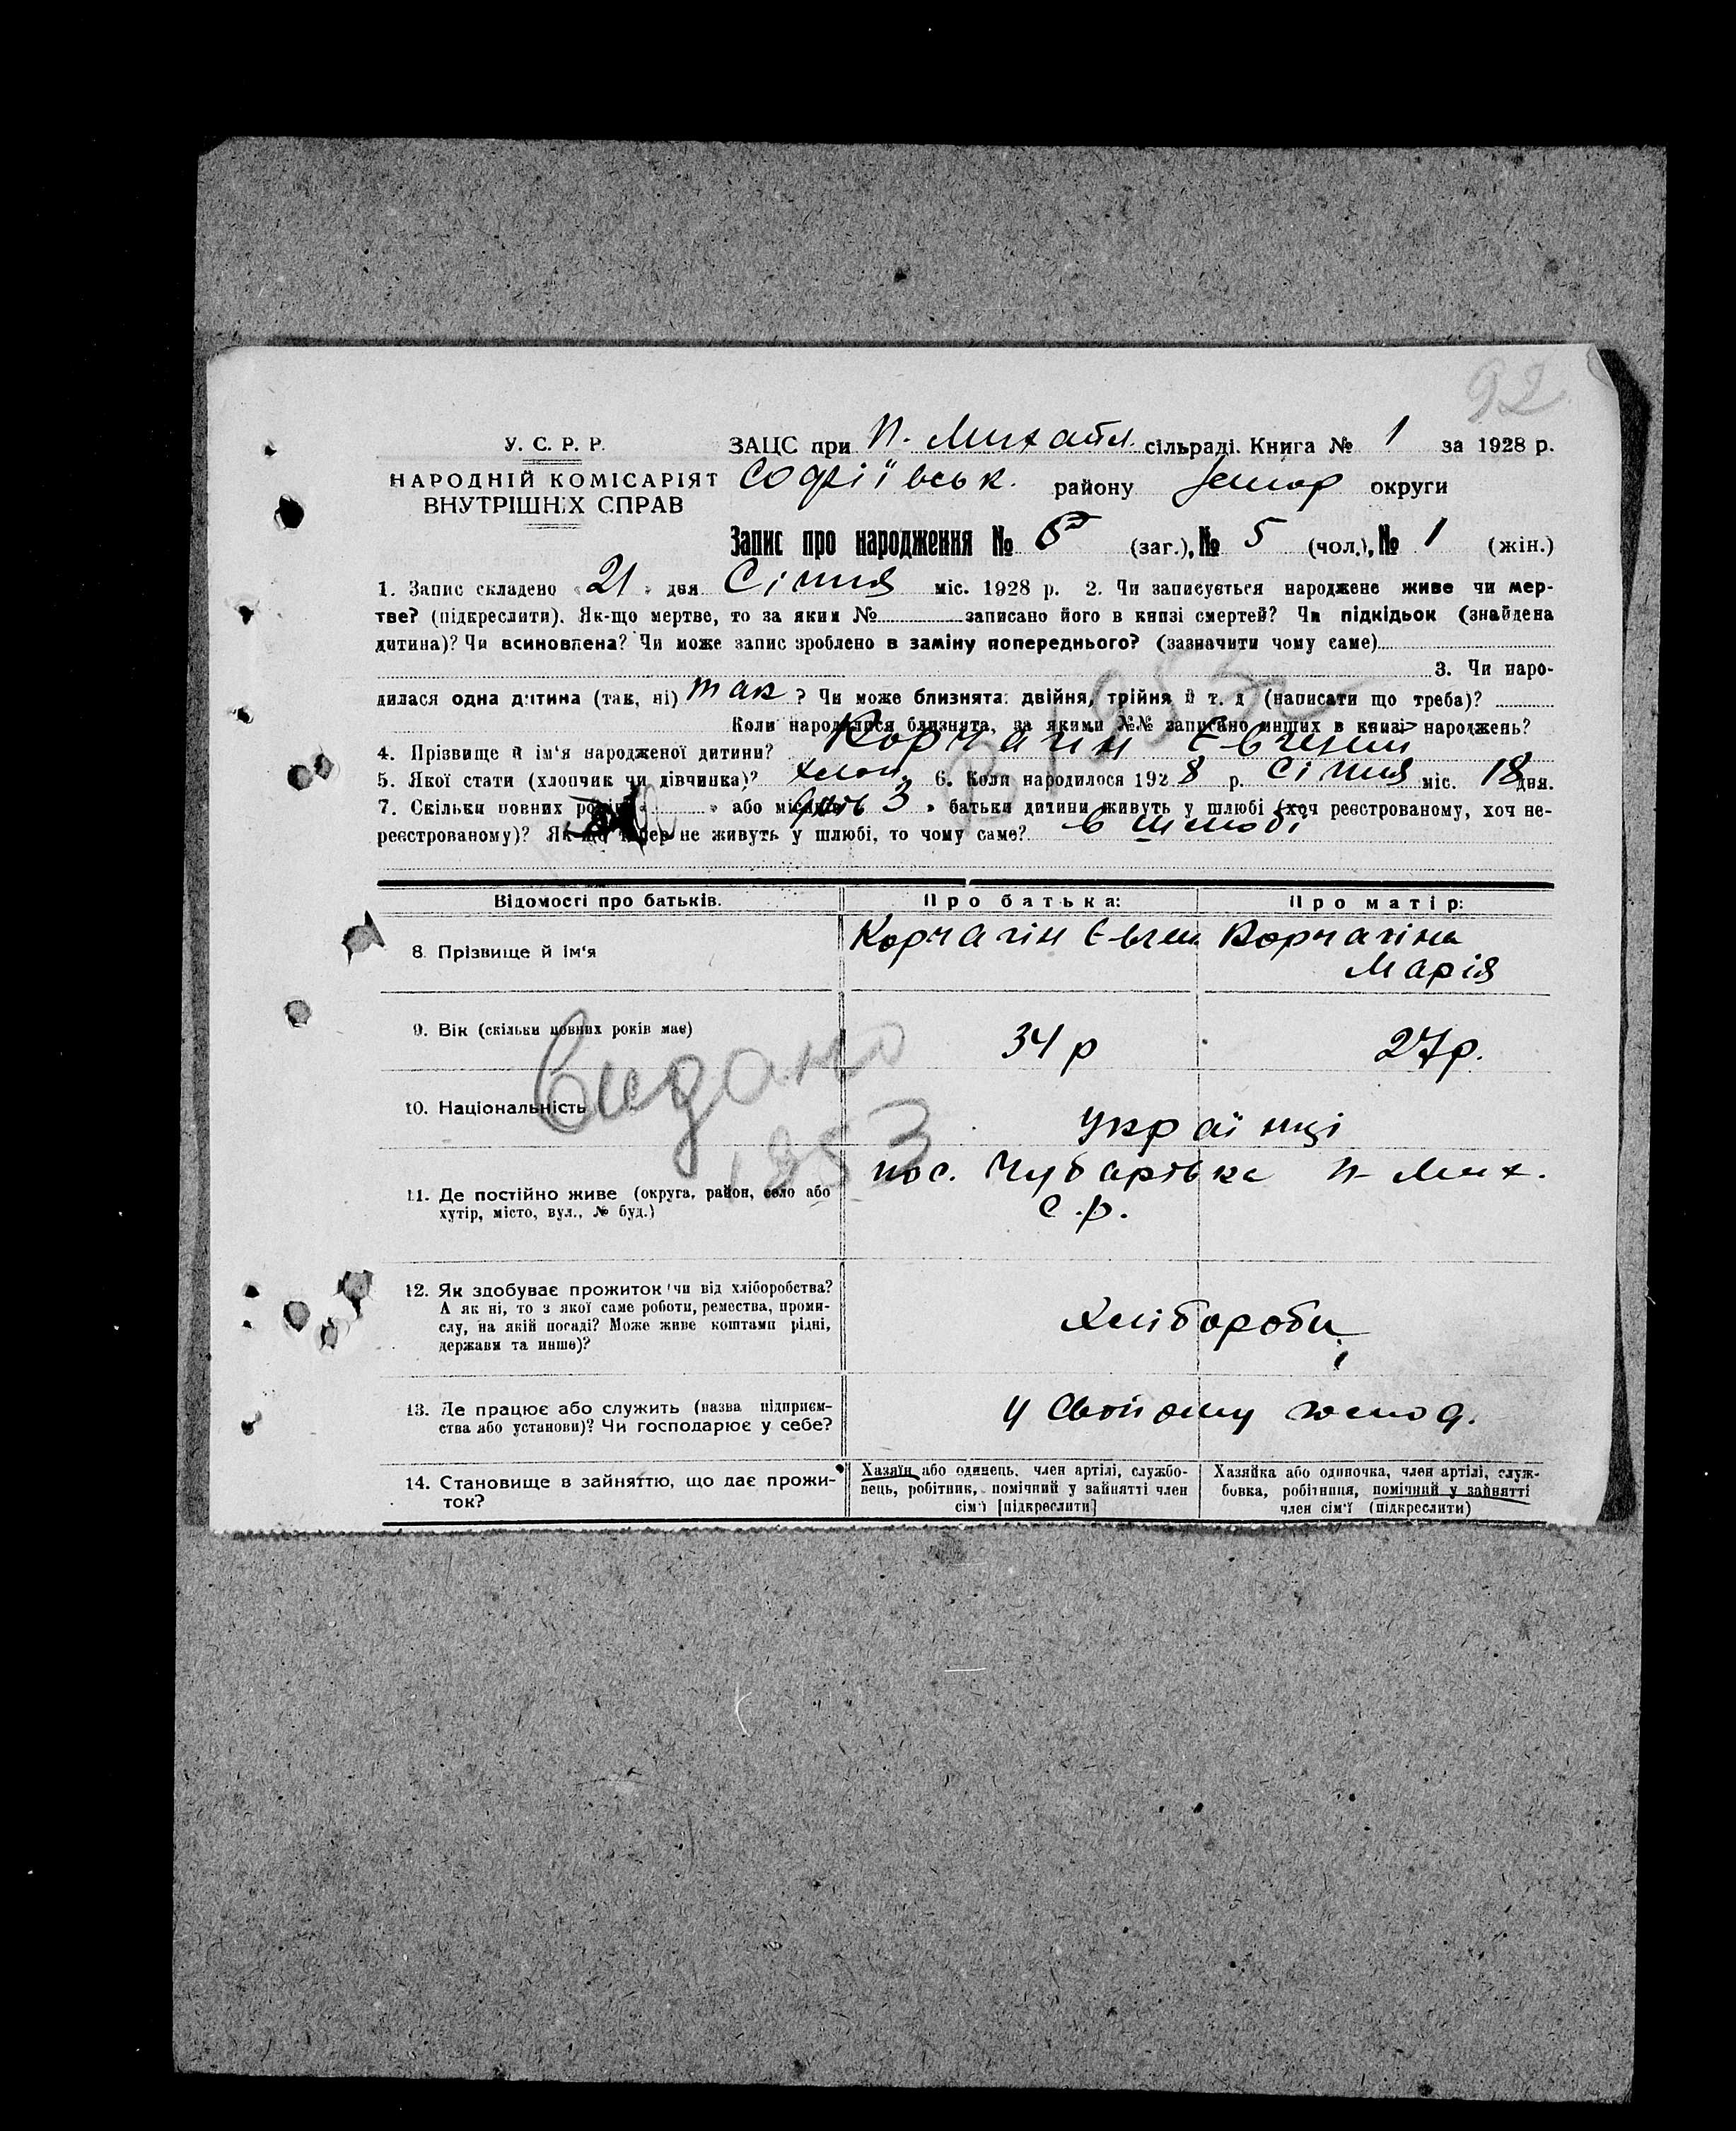 92
У. С. Р. Р. ЗАЦС при Н. Михайл. сільраді. Книга № 1 за 1928 р.
НАРОДНІЙ КОМІСАРІЯТ Софіївськ. району округи
ВНУТРІШНІХ СПРАВ
Запис про народження № 6 (заг.), № 5 (чол.), № 1 (жін.)
1. Запис складено „21“ дня Січня міс. 1928 р. 2. Чи записується народжене живе чи мер-
тве? (підкреслити). Як-що мертве, то за яким № записано його в книзі смертей? Чи підкідьок (знайдена
дитина)? Чи всиновлена? Чи може запис зроблено в заміну попереднього? (зазначити чому саме)
3. Чи наро-
дилася одна дитина (так, ні) так ? Чи може близнята: двійня, трійня й т. д (написати що треба)?
Коли народилися близнята, за якими №№ записано инших в книзі народжень?
4. Прізвище й ім'я народженої дитини? Корчагін Євгеній
5. Якої стати (хлопчик чи дівчинка)? хлоп. 6. Коли народилося 1928 р. Січня міс. 18 дня.
7. Скільки повних років або місяців 3 батьки дитини живуть у шлюбі (хоч реєстрованому, хоч не-
реєстрованому)? Як-що тепер не живуть у шлюбі, то чому саме? в шлюбі
Відомості про батьків. Про батька: Про матір:
8. Прізвище й ім'я Корчагін Євген Корчагіна
Марія
9. Вік (скільки повних років має) 34 р 27 р.
Видано
10. Національність українці
1953
11. Де постійно живе (округа, район, село або пос. Чубарівка Н-Мих.
хутір, місто, вул., № буд.) с.р.
12. Як здобуває прожиток (чи від хліборобства?
А як ні, то з якої саме роботи, ремества, проми- Хлібороби
слу, на якій посаді? Може живе коштами рідні,
держави та инше)?
13. Де працює або служить (назва підприєм- у своїому господ.
ства або установи)? Чи господарює у себе?
14. Становище в зайняттю, що дає прожи- Хазяїн або одинець, член артілі, службо- Хазяйка або одиночка, член артілі, служ-
ток? вець, робітник, помічний у зайнятті член бовка, робітниця, помічний у зайнятті
сім'ї [підкреслити] член сім'ї (підкреслити)